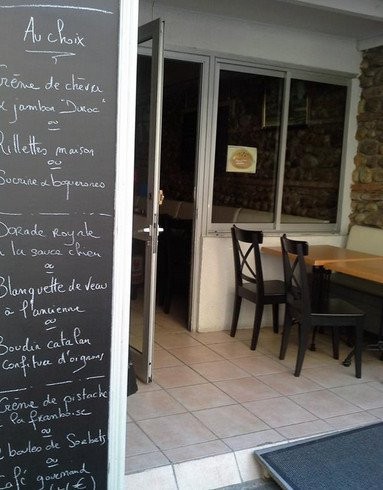 Au choix
Crème de chèvre
& jambon "Duroc"
ou
Rillettes maison
ou
Sucrine & boquerones
Dorade royale
à la sauce chien
ou
Blanquette de veau
à l'ancienne
ou
Boudin catalan
confiture d'oignons
Crème de pistache
à la framboise
ou
2 boules de Sorbets
ou
Café gourmand